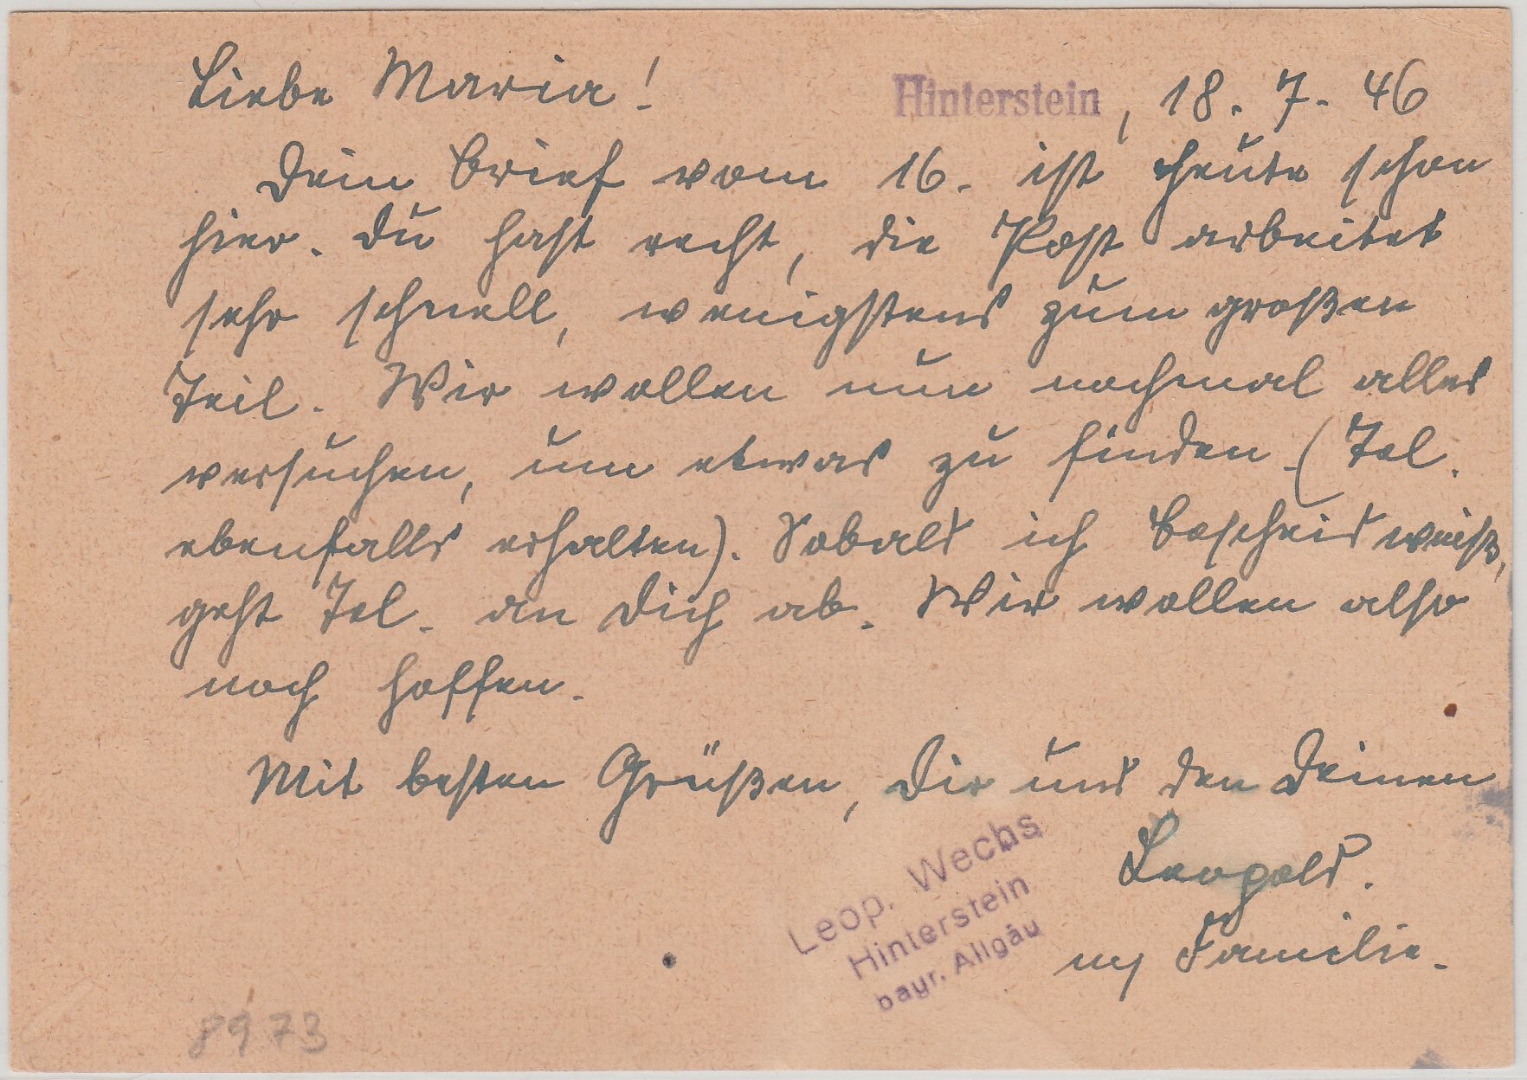 Liebe Maria!
Hinterstein, 18. 7. 46
Dein Brief vom 16. ist heute schon
hier. Du hast recht, die Post arbeitet
sehr schnell, wenigstens zum großen
Teil. Wir wollen nun nochmal alles
versuchen, um etwas zu finden. (Tel.
ebenfalls erhalten). Sobald ich Bescheid weiß,
geht Tel. an Dich ab. Wir wollen also
noch hoffen.
Mit besten Grüßen, Dir und den Deinen
Leopold.
Leop. Wechs
Hinterstein
bayr. Allgäu
Familie.
8973